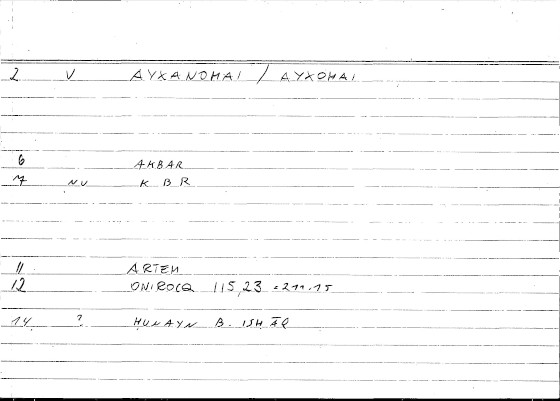 2 V AYXANOMAI / AYXOMAI
6 AKBAR
7 NU K B R
11 ARTEM
12 ONIROCQ 115,23 = 211.15
14 ? ḤUNAYN B. ISḤĀQ